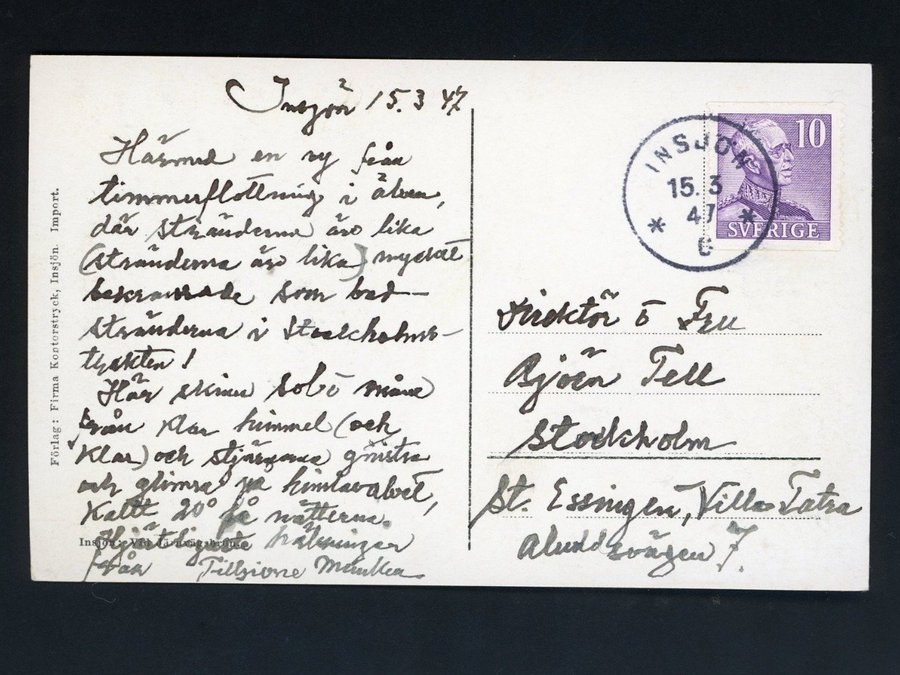 Insjön 15.3 47
Härmed en vy från
timmerflottning i älven,
där stränderna äro lika
(stränderna äro lika) mycket
som bad-
stränderna i Stockholms-
trakten!
Här skiner sol o måne
från klar himmel (och
klar) och stjärnorna gnistra
och glimra på himlavalvet,
Kallt 20° på nätterna.
Hjärtligaste hälsningar
från
Insjön:
Förlag: Firma Kontorstryck, Insjön. Import.
INSJÖN
15.3
47
10
SVERIGE
Direktör o Fru
Björn Tell
Stockholm
St. Essingen, Villa Tatra
7.